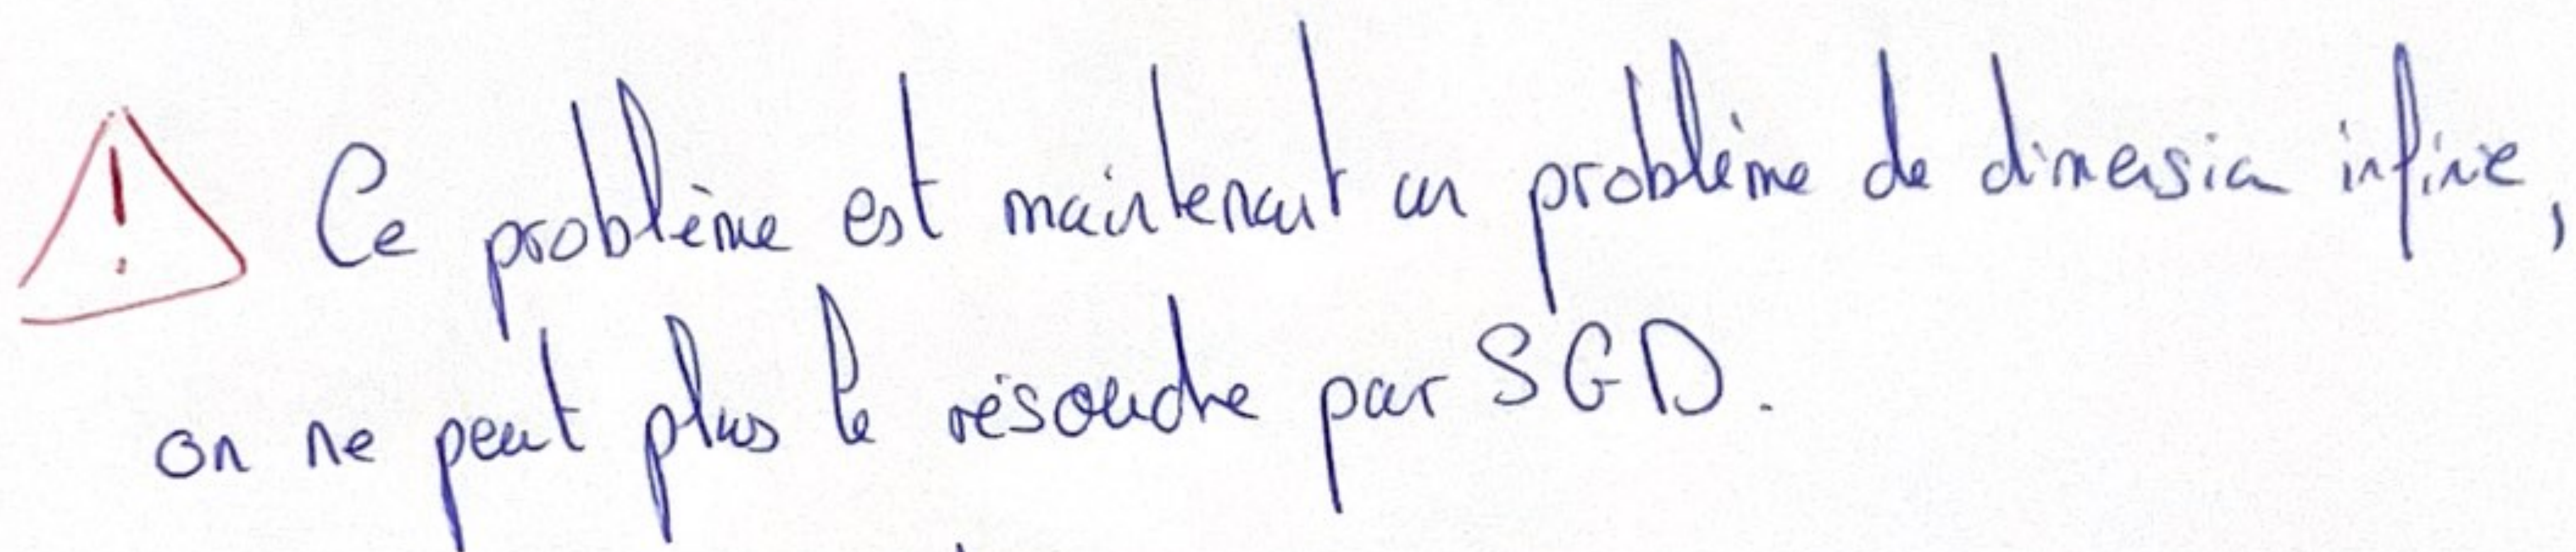 ⚠ Ce problème est maintenant un problème de dimension infinie,
on ne peut plus le résoudre par SGD.